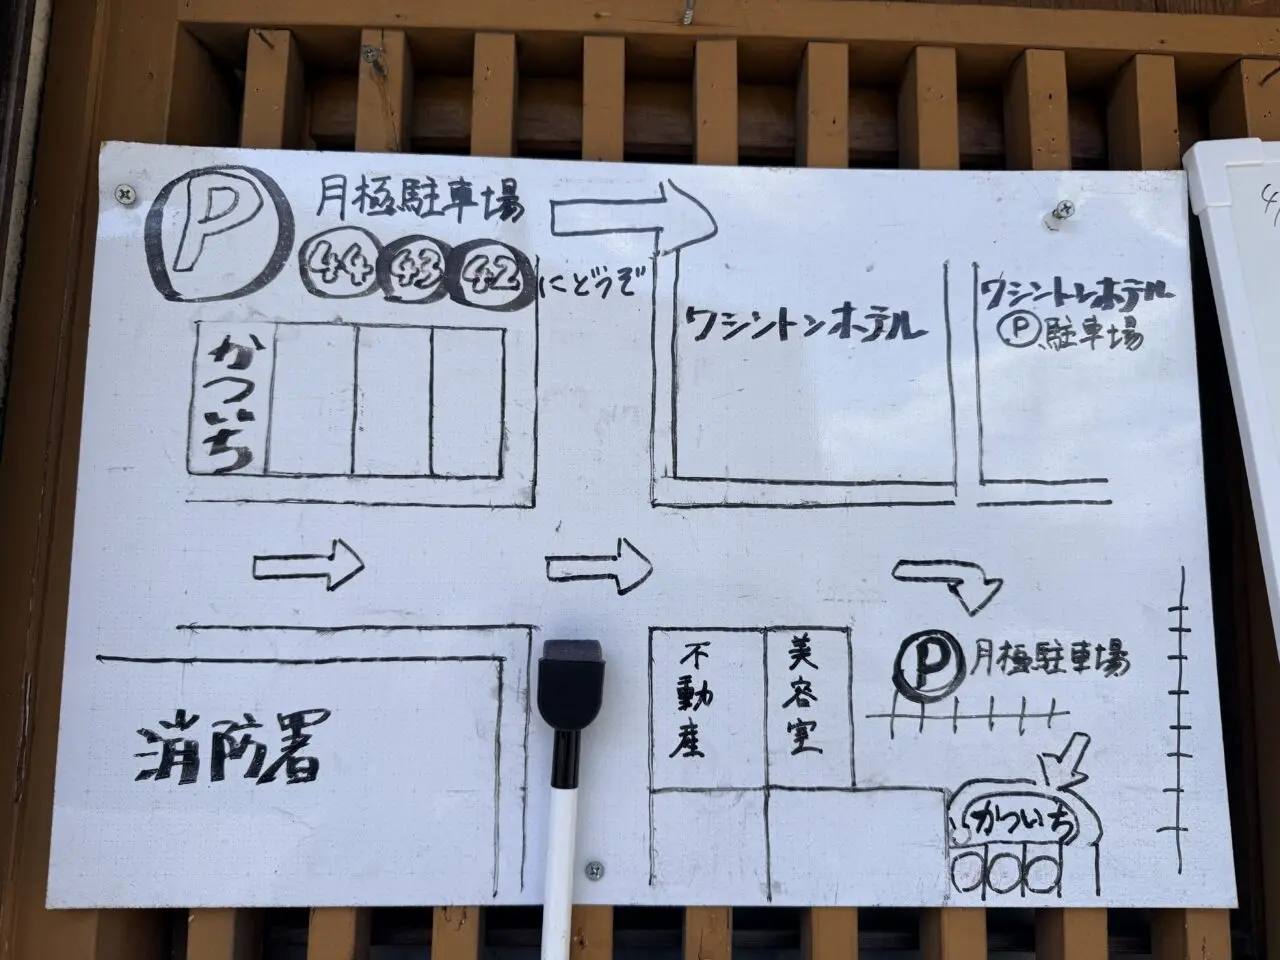 P 月極駐車場
44 43 42 にどうぞ
かついち
ワシントンホテル
ワシントンホテル
P 駐車場
消防署
不動産
美容室
P 月極駐車場
かついち